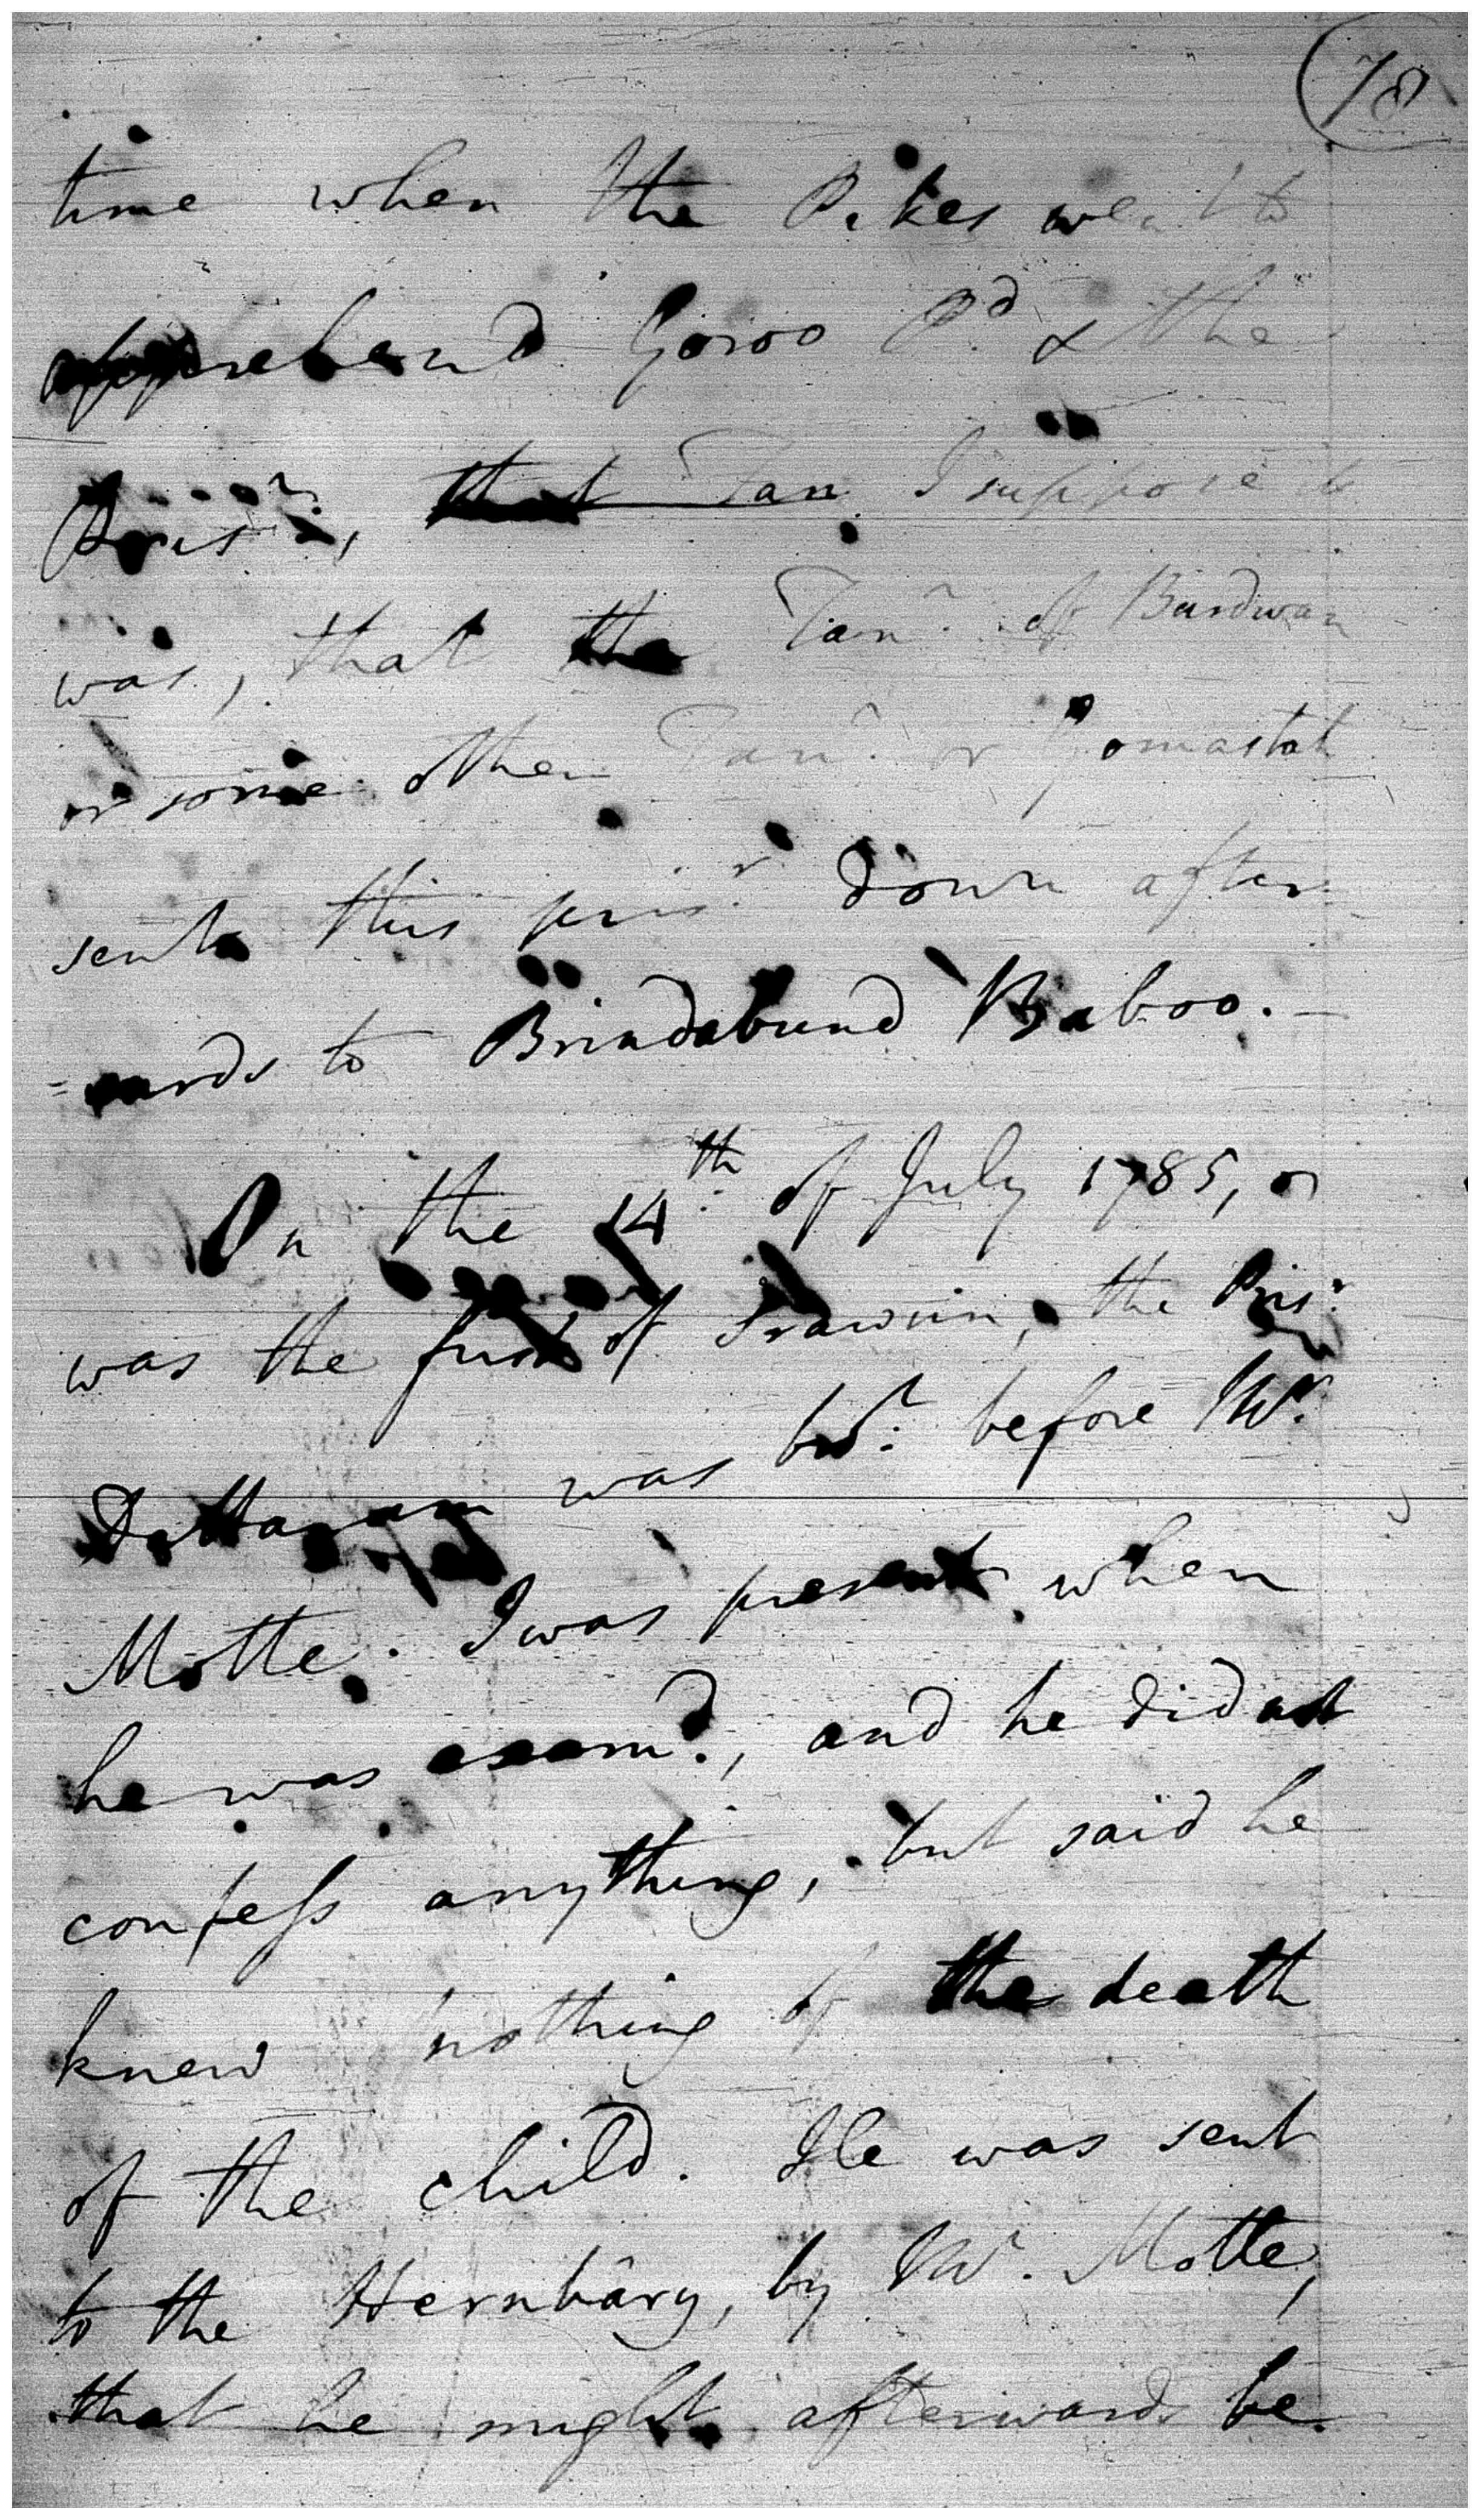 78
time when the Pikes went to
apprehend Goroo P.d & the
Prisr., that Tan I suppose it
was, that the Tanr. of Burdwan
or some other Tanr. or Gomastah
sent this prisr. down after
=wards to Brindabund Baboo.
On the 14th. of July 1785, or
was the first of Srawun, the Prisr.
Dattaram was brt. before Mr.
Motte. I was present when
he was examd., and he did not
confess anything, but said he
knew nothing of the death
of the child. He was sent
to the Hernbâry, by Mr. Motte,
that he might afterwards be